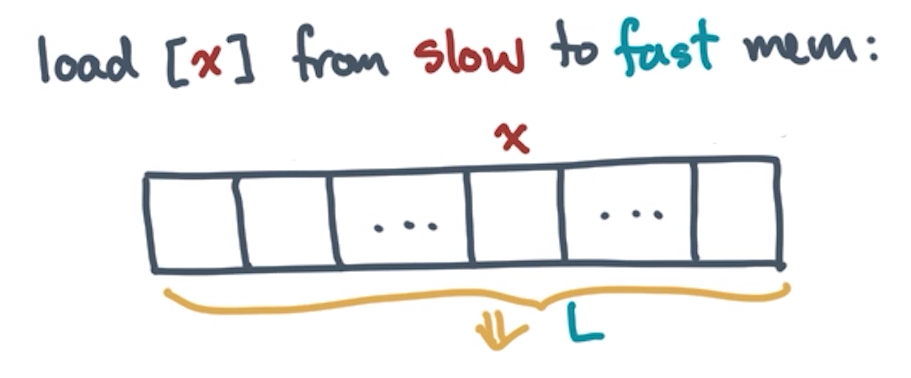 load [x] from slow to fast mem:
x
... ...
L